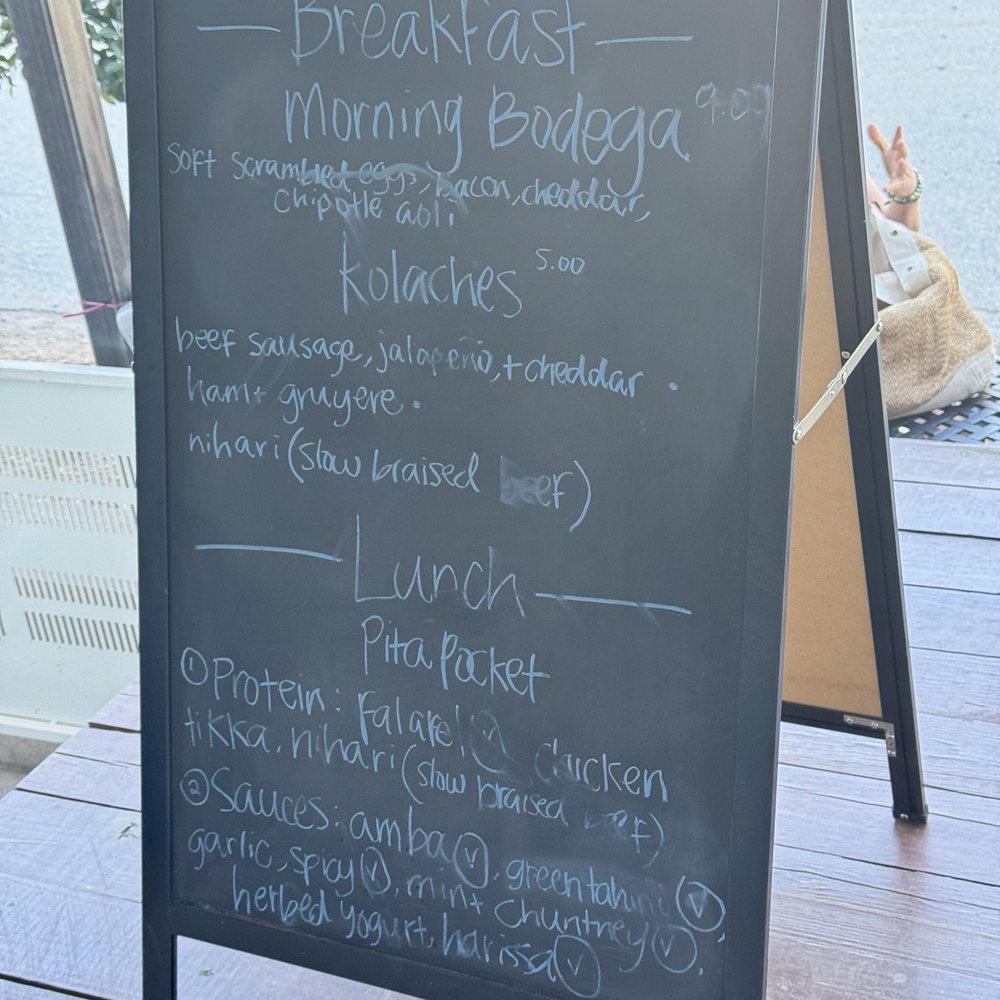 Breakfast
Morning Bodega 9.00
Soft scrambled eggs, bacon, cheddar,
chipotle aoli
Kolaches 5.00
beef sausage, jalapeño, + cheddar .
ham + gruyere .
nihari (slow braised beef)
Lunch
Pita Pocket
① Protein: Falafel Ⓥ chicken
tikka, nihari (slow braised beef)
② Sauces: amba Ⓥ, green tahini Ⓥ,
garlic, spicy Ⓥ, mint chuntney Ⓥ,
herbed yogurt, harissa Ⓥ